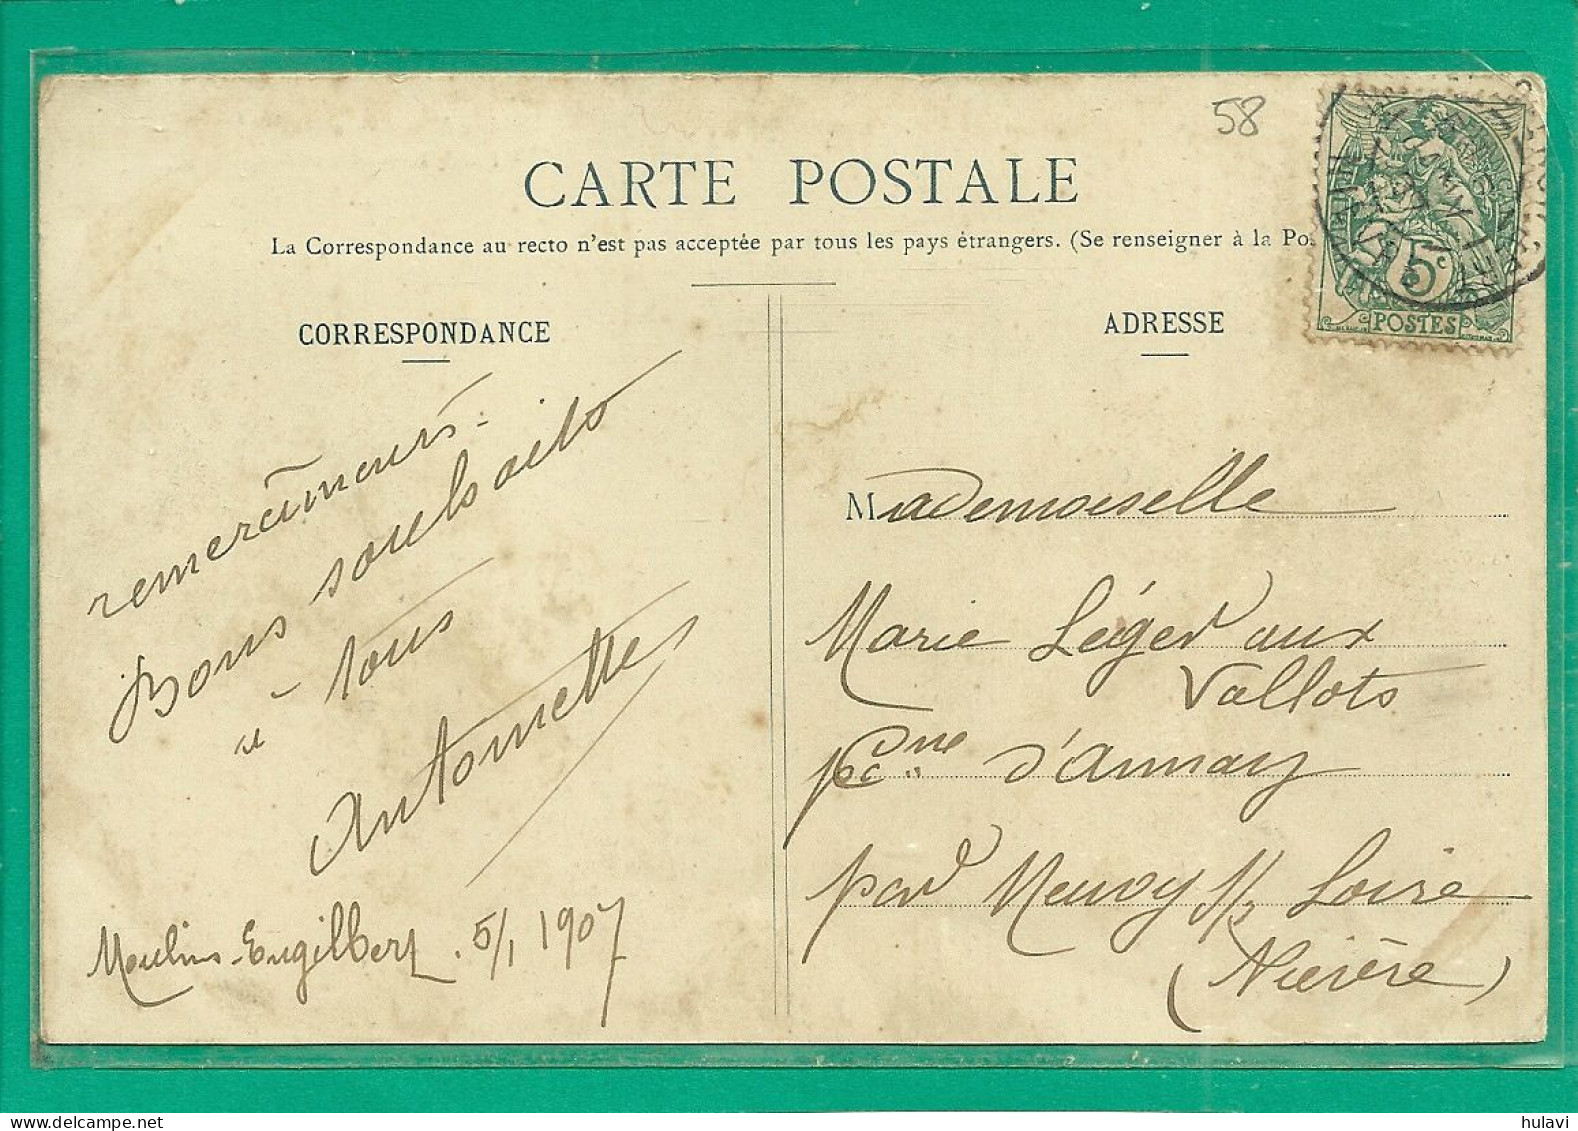 58
CARTE POSTALE
La Correspondance au recto n'est pas acceptée par tous les pays étrangers. (Se renseigner à la Pos
CORRESPONDANCE
remerciements.
Bons souhaits
à tous
Antoinette
Moulins-Engilbert. 5/1 1907
ADRESSE
5c
POSTES
Mademoiselle
Marie Léger aux
Vallots
cne d'Annay
par Neuvy s/ Loire
(Nièvre)
hulavi